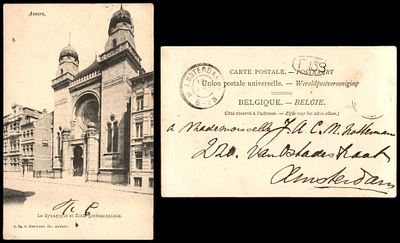 Anvers.
La Synagogue et École professionnelle.
AMSTERDAM
F 138
CARTE POSTALE. — POSTKAART
Union postale universelle. — Wereldpostvereeniging
BELGIQUE. — BELGIE.
Côté réservé à l'adresse. — Zijde voor het adres alleen
a Mademoiselle J. A. C. M.
220. van Ostadestraat
Amsterdam